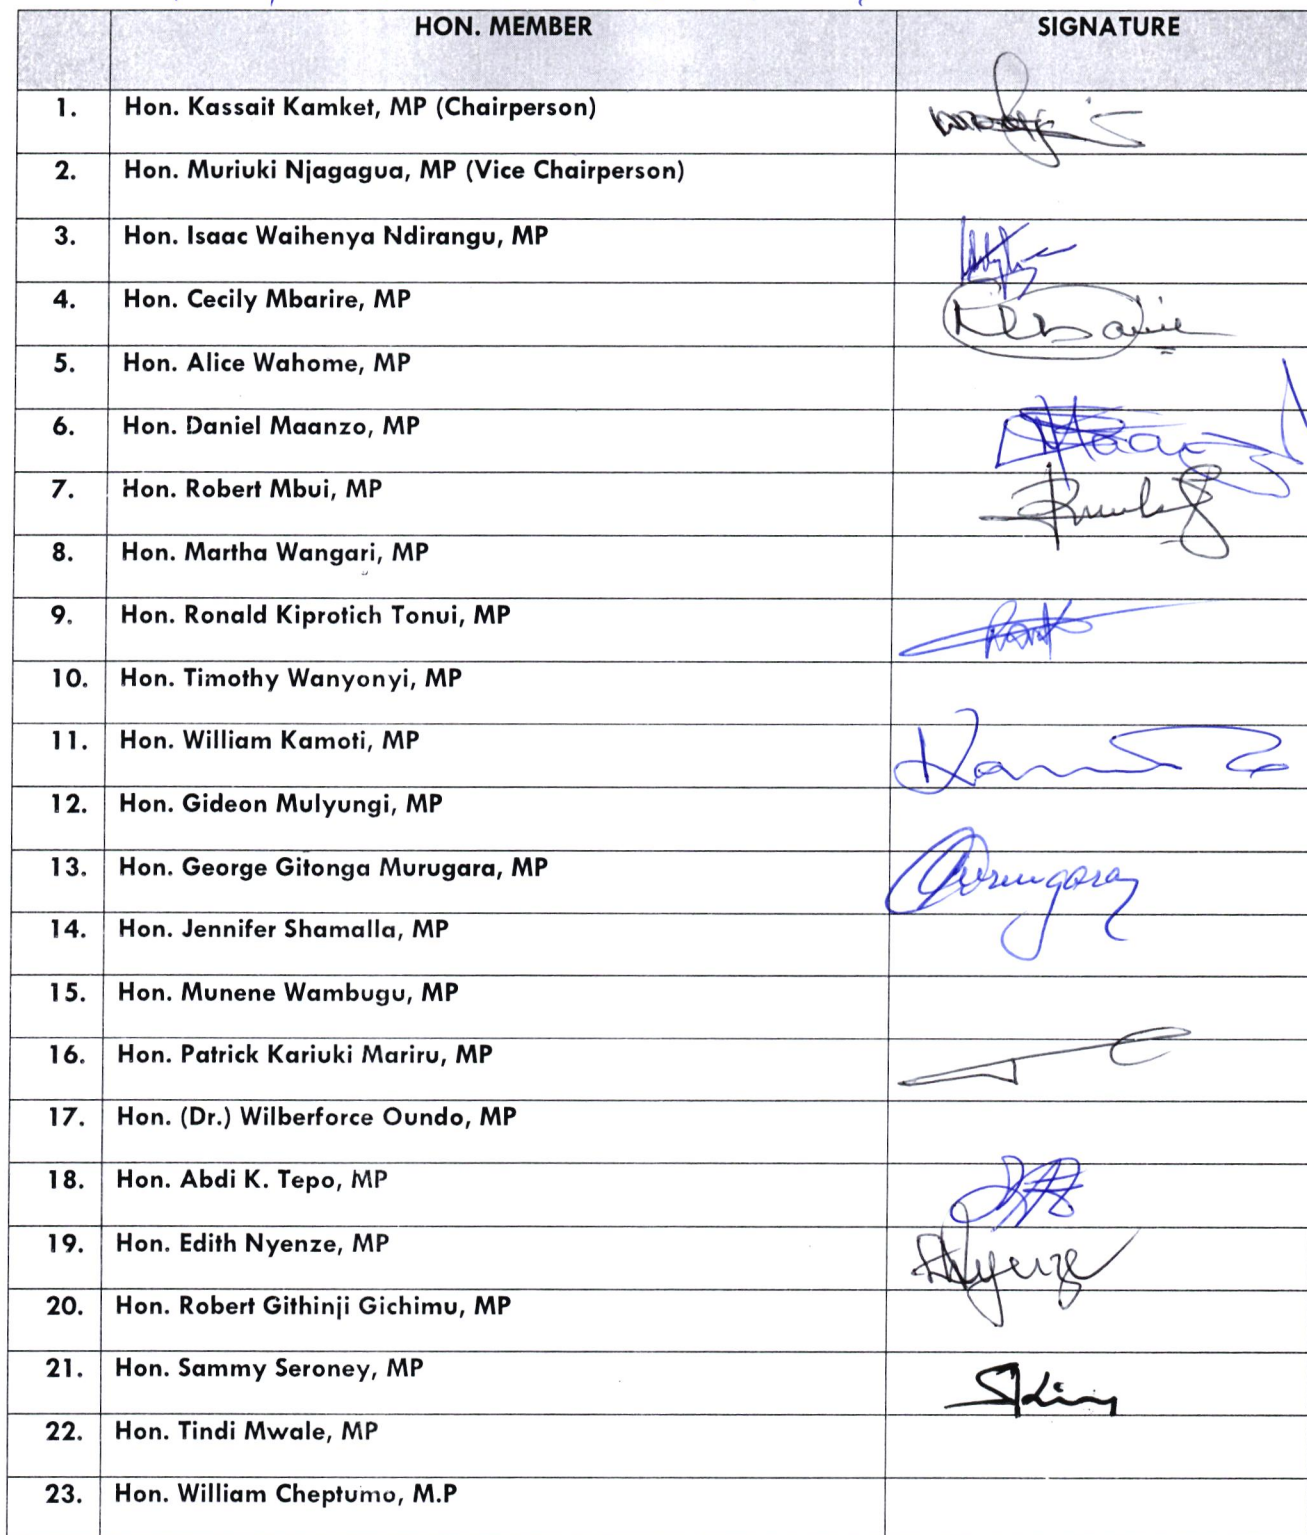 HON. MEMBER SIGNATURE
1. Hon. Kassait Kamket, MP (Chairperson)
2. Hon. Muriuki Njagagua, MP (Vice Chairperson)
3. Hon. Isaac Waihenya Ndirangu, MP
4. Hon. Cecily Mbarire, MP
5. Hon. Alice Wahome, MP
6. Hon. Daniel Maanzo, MP
7. Hon. Robert Mbui, MP
8. Hon. Martha Wangari, MP
9. Hon. Ronald Kiprotich Tonui, MP
10. Hon. Timothy Wanyonyi, MP
11. Hon. William Kamoti, MP
12. Hon. Gideon Mulyungi, MP
13. Hon. George Gitonga Murugara, MP
14. Hon. Jennifer Shamalla, MP
15. Hon. Munene Wambugu, MP
16. Hon. Patrick Kariuki Mariru, MP
17. Hon. (Dr.) Wilberforce Oundo, MP
18. Hon. Abdi K. Tepo, MP
19. Hon. Edith Nyenze, MP
20. Hon. Robert Githinji Gichimu, MP
21. Hon. Sammy Seroney, MP
22. Hon. Tindi Mwale, MP
23. Hon. William Cheptumo, M.P